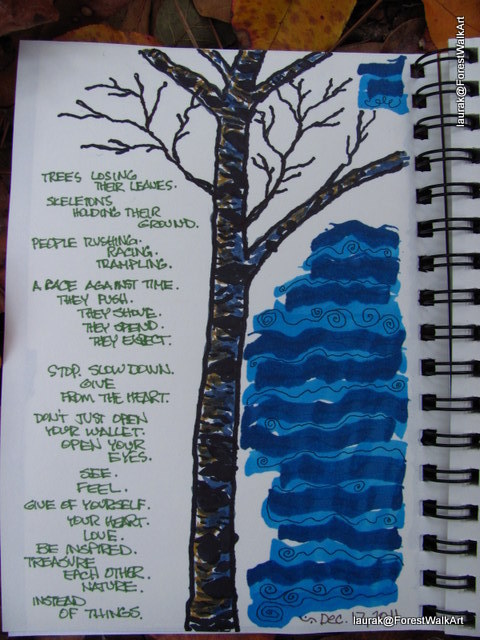 TREES LOSING
THEIR LEAVES.
SKELETONS
HOLDING THEIR
GROUND.
PEOPLE RUSHING.
RACING.
TRAMPLING.
A RACE AGAINST TIME.
THEY PUSH.
THEY SHOVE.
THEY SPEND.
THEY EXPECT.
STOP. SLOW DOWN.
GIVE
FROM THE HEART.
DON'T JUST OPEN
YOUR WALLET.
OPEN YOUR
EYES.
SEE.
FEEL.
GIVE OF YOURSELF.
YOUR HEART.
LOVE.
BE INSPIRED.
TREASURE
EACH OTHER.
NATURE.
INSTEAD
OF THINGS.
Dec.
laurak@ForestWalkArt
laurak@ForestWalkArt